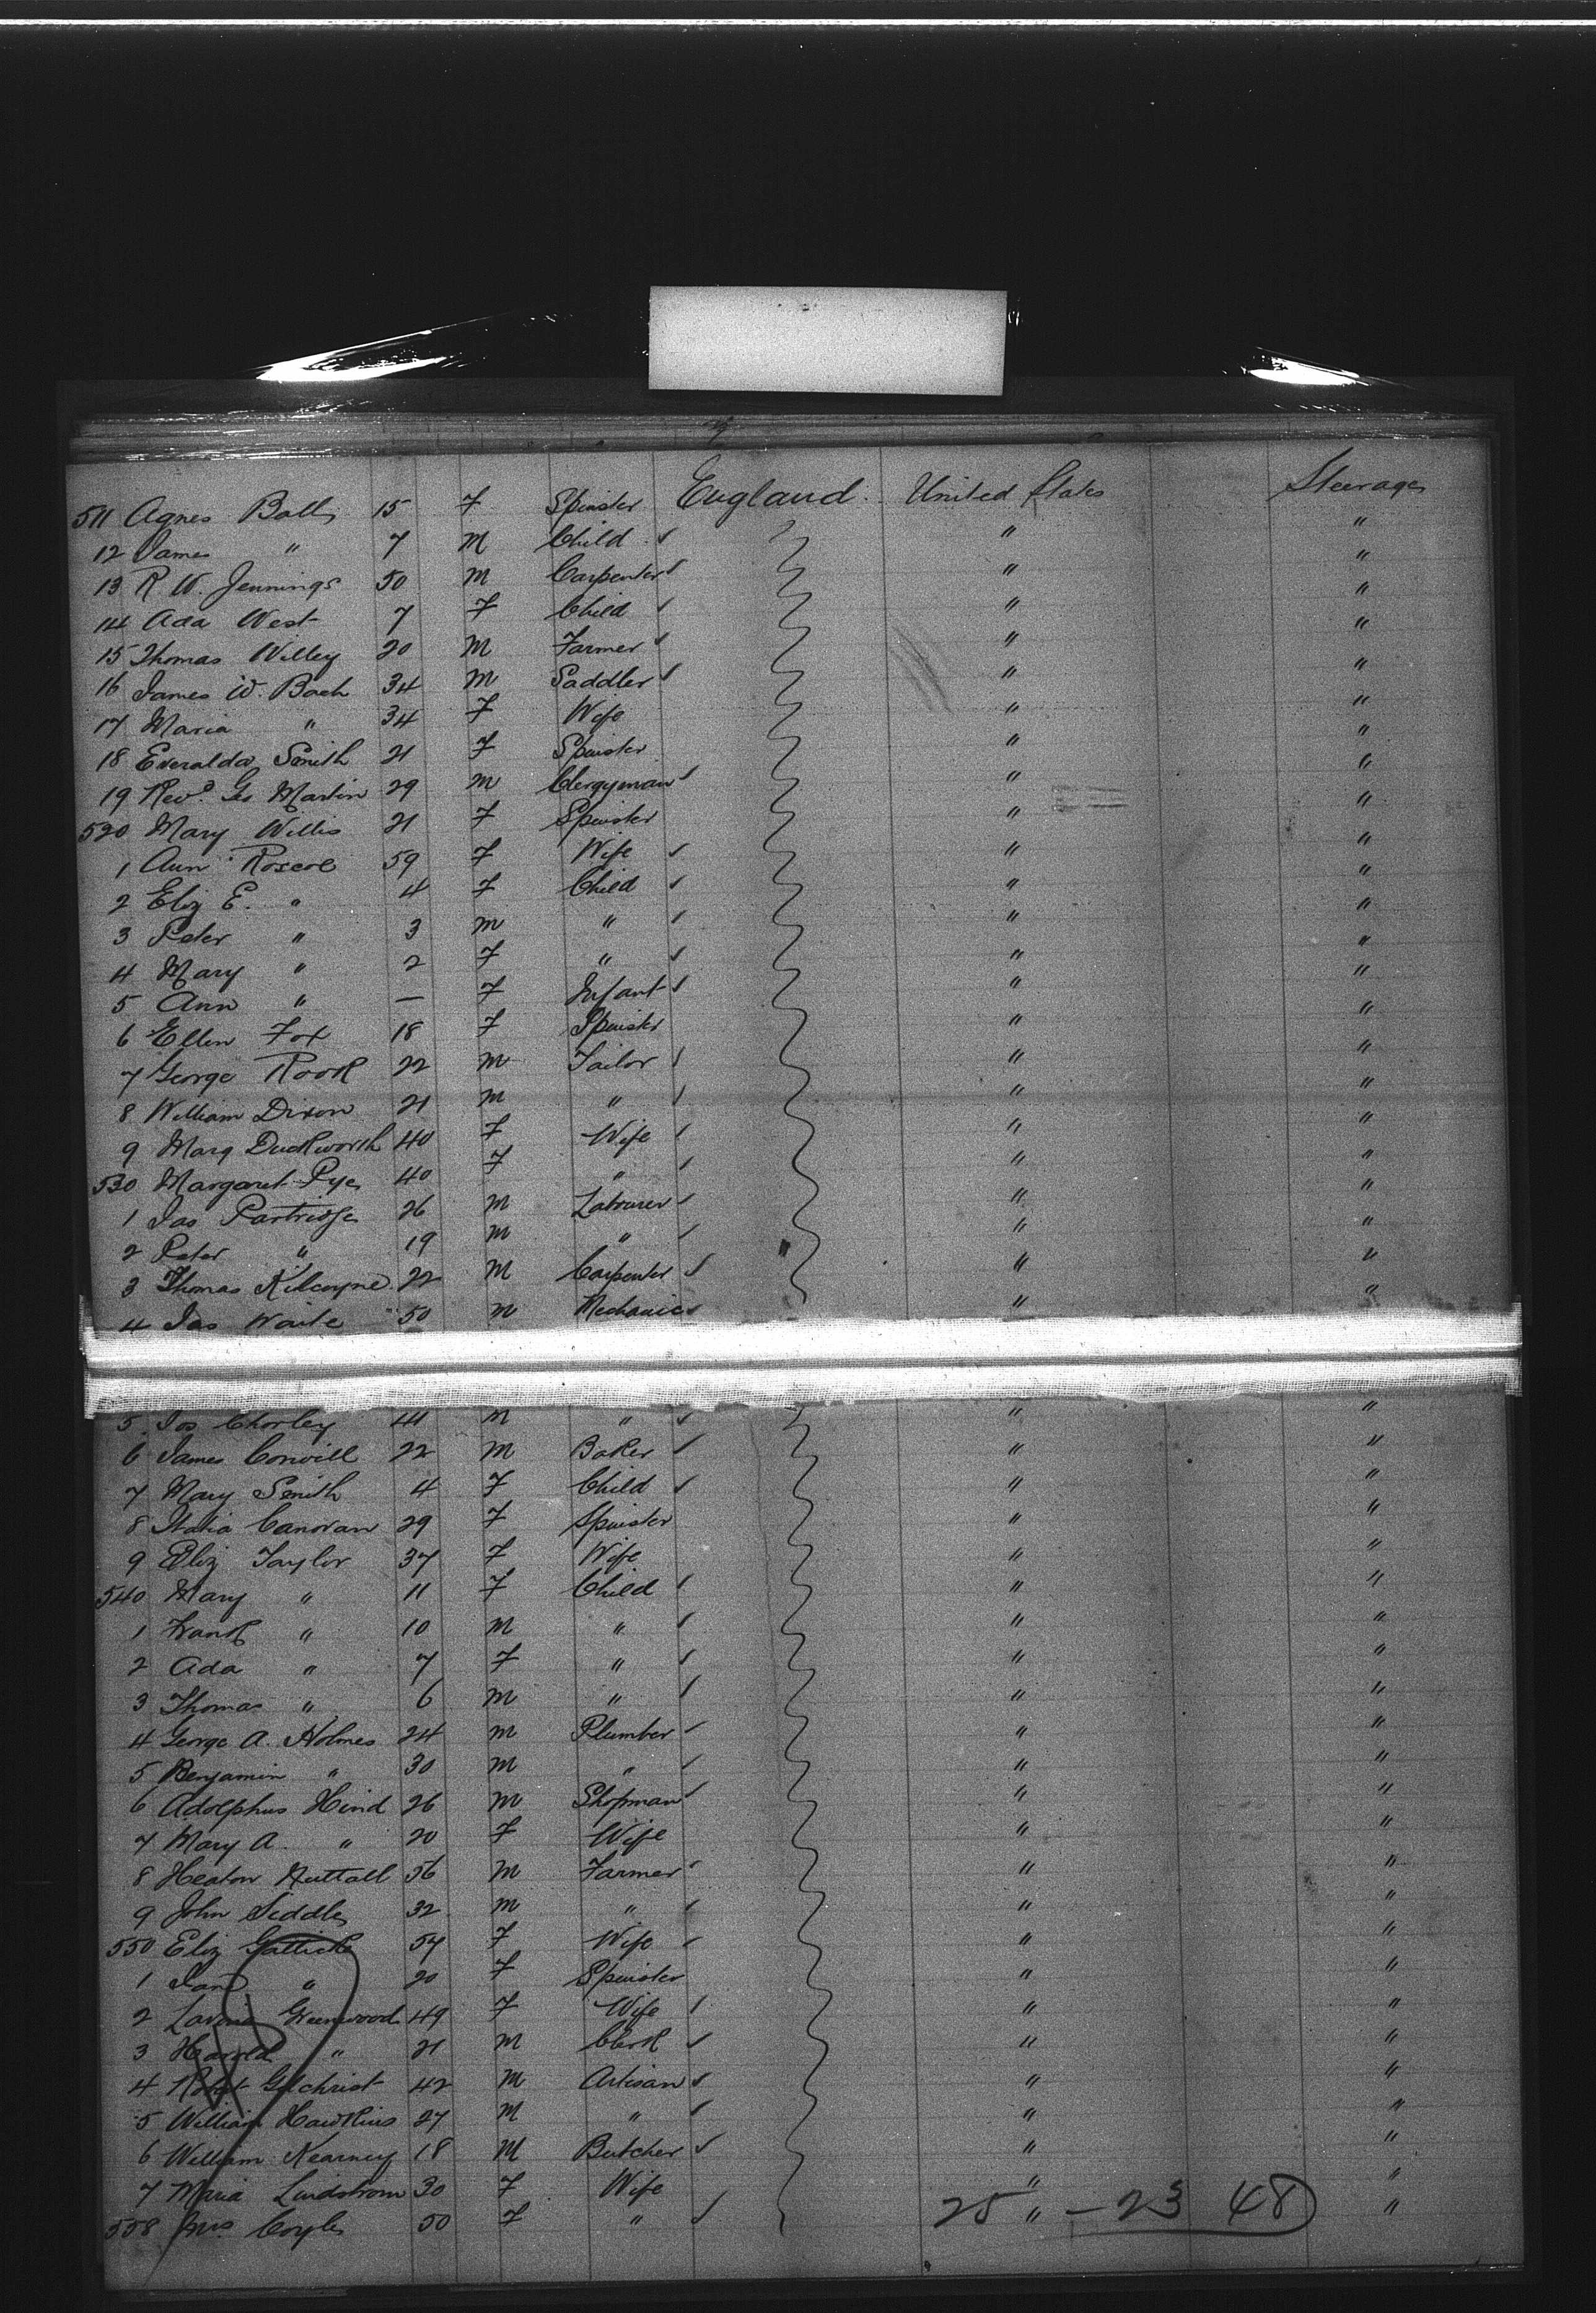 511 Agnes Ball 15 F Spinster England United States Steerage
12 James " 7 M Child " "
13 R. W. Jennings 50 M Carpenter " "
14 Ada West 7 F Child " "
15 Thomas Willey 20 M Farmer " "
16 James W. Bach 34 M Saddler " "
17 Maria " 34 F Wife " "
18 Everalda Smith 21 F Spinster " "
19 Revd. Geo Martin 29 M Clergyman " "
520 Mary Willis 21 F Spinster " "
1 Ann Roscoe 59 F Wife " "
2 Eliz E. " 4 F Child " "
3 Peter " 3 M " " "
4 Mary " 2 F " " "
5 Ann " — F Infant " "
6 Ellen Fox 18 F Spinster " "
7 George Rook 22 M Tailor " "
8 William Dixon 21 M " " "
9 Marg Duckworth 40 F Wife " "
530 Margaret Pye 40 F " " "
1 Jas Partridge 26 M Labourer " "
2 Peter " 19 M " " "
3 Thomas Kilcoyne 22 M Carpenter " "
4 Jas Waite 50 M Mechanic " "
5 Jos Chorley 44 M " " "
6 James Convill 22 M Baker " "
7 Mary Smith 4 F Child " "
8 Italia Canovan 29 F Spinster " "
9 Eliz Taylor 37 F Wife " "
540 Mary " 11 F Child " "
1 Frank " 10 M " " "
2 Ada " 7 F " " "
3 Thomas " 6 M " " "
4 George A. Holmes 24 M Plumber " "
5 Benjamin " 30 M " " "
6 Adolphus Hind 26 M Shopman " "
7 Mary A. " 20 F Wife " "
8 Heaton Nuttall 56 M Farmer " "
9 John Siddle 32 M " " "
550 Eliz 54 F Wife " "
1 Jane " 20 F Spinster " "
2 Lavinia Greenwood 49 F Wife " "
3 Harold " 21 M Clerk " "
4 Robt Gilchrist 42 M Artisan " "
5 William Hawkins 27 M " " "
6 William Kearney 18 M Butcher " "
7 Maria Lindstrom 30 F Wife " "
558 Mrs Coyle 50 F " " "
25 — 23 48